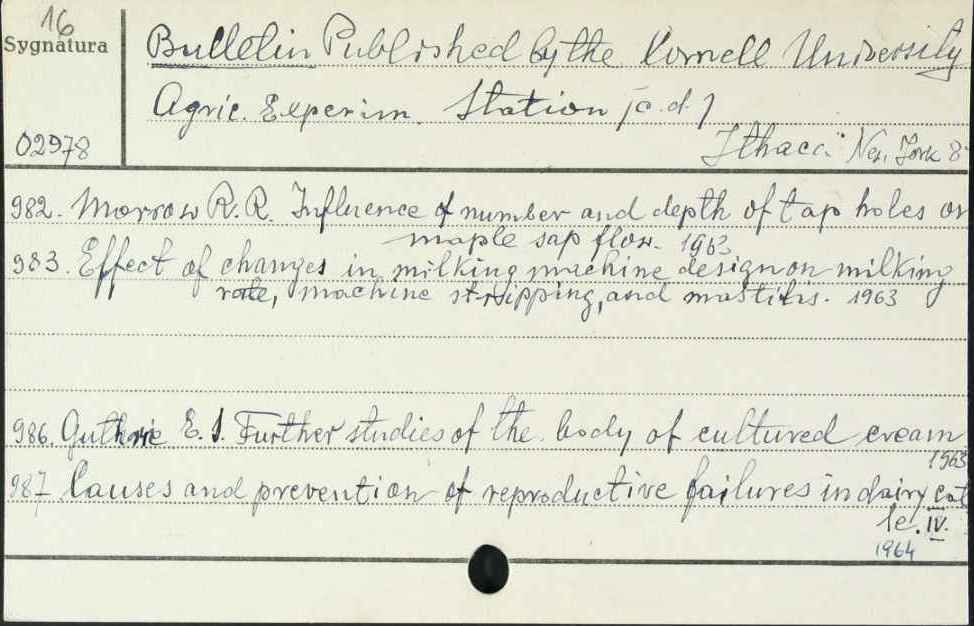 16
Sygnatura
02978
Bulletin Published by the Cornell University
Agric. Experim. Station /c.d./
Ithaca New York 8
982. Morrow R.R. Influence of number and depth of tap holes on
maple sap flow. 1963
983. Effect of changes in milking machine design on milking
rate, machine stripping, and mastitis. 1963
986. Guthrie E.S. Further studies of the body of cultured cream
1963
987 Causes and prevention of reproductive failures in dairy cat
le. IV.
1964